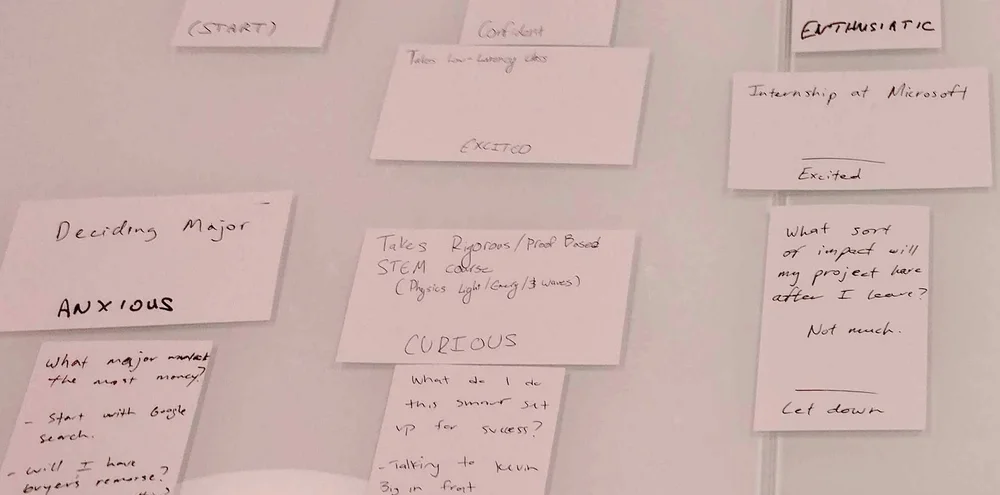 (START)
Confident
Takes Low-Latency class
EXCITED
ENTHUSIATIC
Internship at Microsoft
Excited
Deciding Major
ANXIOUS
Takes Rigorous/Proof Based
STEM course
(Physics Light/ /$ waves)
CURIOUS
What sort
of impact will
my project have
after I leave?
Not much.
Let down
What major
the most money?
- Start with Google
search.
- Will I have
buyers remorse?
What do I do
this summer set
up for success?
- Talking to Kevin
in front